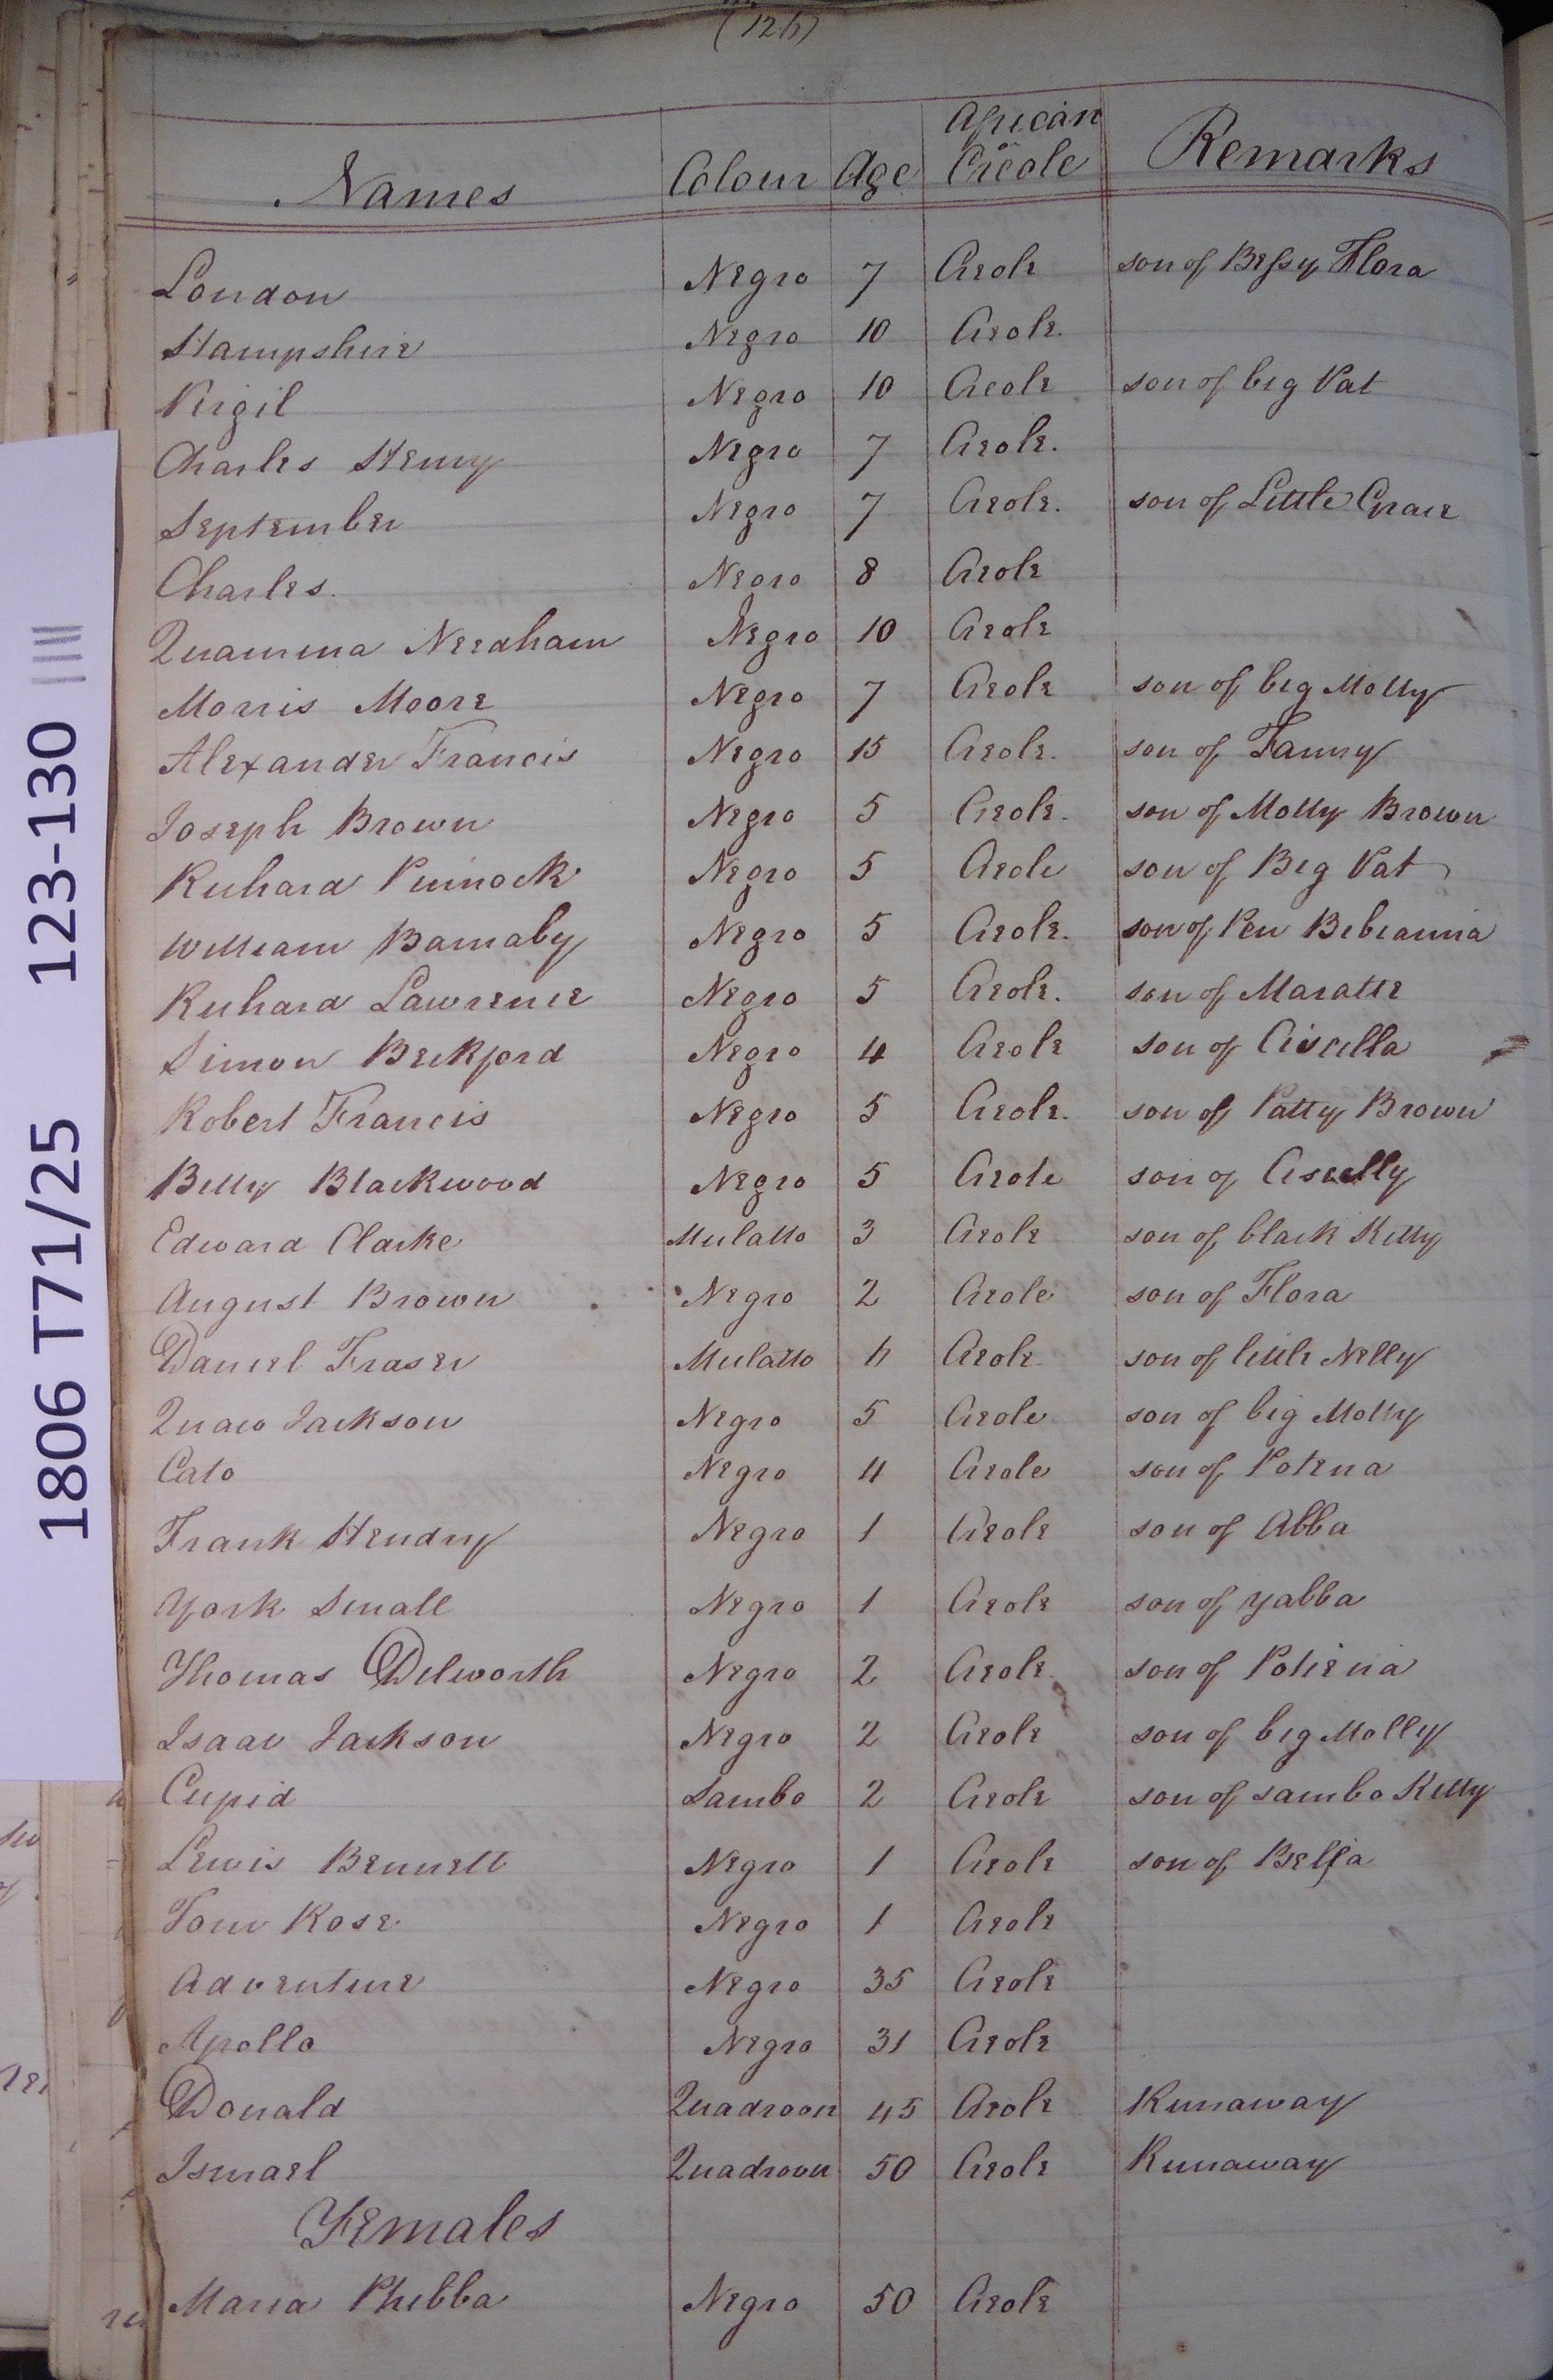 (126)
Names Colour Age African or Creole Remarks
London Negro 7 Creole son of Bessy Flora
Hampshire Negro 10 Creole.
Virgil Negro 10 Creole son of big Pat
Charles Henry Negro 7 Creole.
September Negro 7 Creole. son of Little Grace
Charles. Negro 8 Creole
Quamina Needham Negro 10 Creole
Morris Moore Negro 7 Creole son of big Molly
Alexander Francis Negro 15 Creole. son of Fanny
Joseph Brown Negro 5 Creole. son of Molly Brown
Richard Pinnock Negro 5 Creole son of Big Pat
William Barnaby Negro 5 Creole. son of Pen Bibianna
Richard Lawrence Negro 5 Creole. son of
Simon Beckford Negro 4 Creole son of
Robert Francis Negro 5 Creole. son of Patty Brown
Billy Blackwood Negro 5 Creole son of
Edward Clarke Mulatto 3 Creole son of black Kitty
August Brown Negro 2 Creole son of Flora
Daniel Fraser Mulatto 6 Creole son of little Nelly
Quaco Jackson Negro 5 Creole son of big Molly
Cato Negro 4 Creole son of Potena
Frank Hendry Negro 1 Creole son of Abba
York Small Negro 1 Creole son of Yabba
Thomas Dilworth Negro 2 Creole son of Potiena
Isaac Jackson Negro 2 Creole son of big Molly
Cupid Sambo 2 Creole son of sambo Kitty
Lewis Bennett Negro 1 Creole son of Bessa
Tom Rose Negro 1 Creole
Adventure Negro 35 Creole
Apollo Negro 31 Creole
Donald Quadroon 45 Creole Runaway
Ismael Quadroon 50 Creole Runaway
Females
Maria Phibba Negro 50 Creole
1806 T71/25 123-130